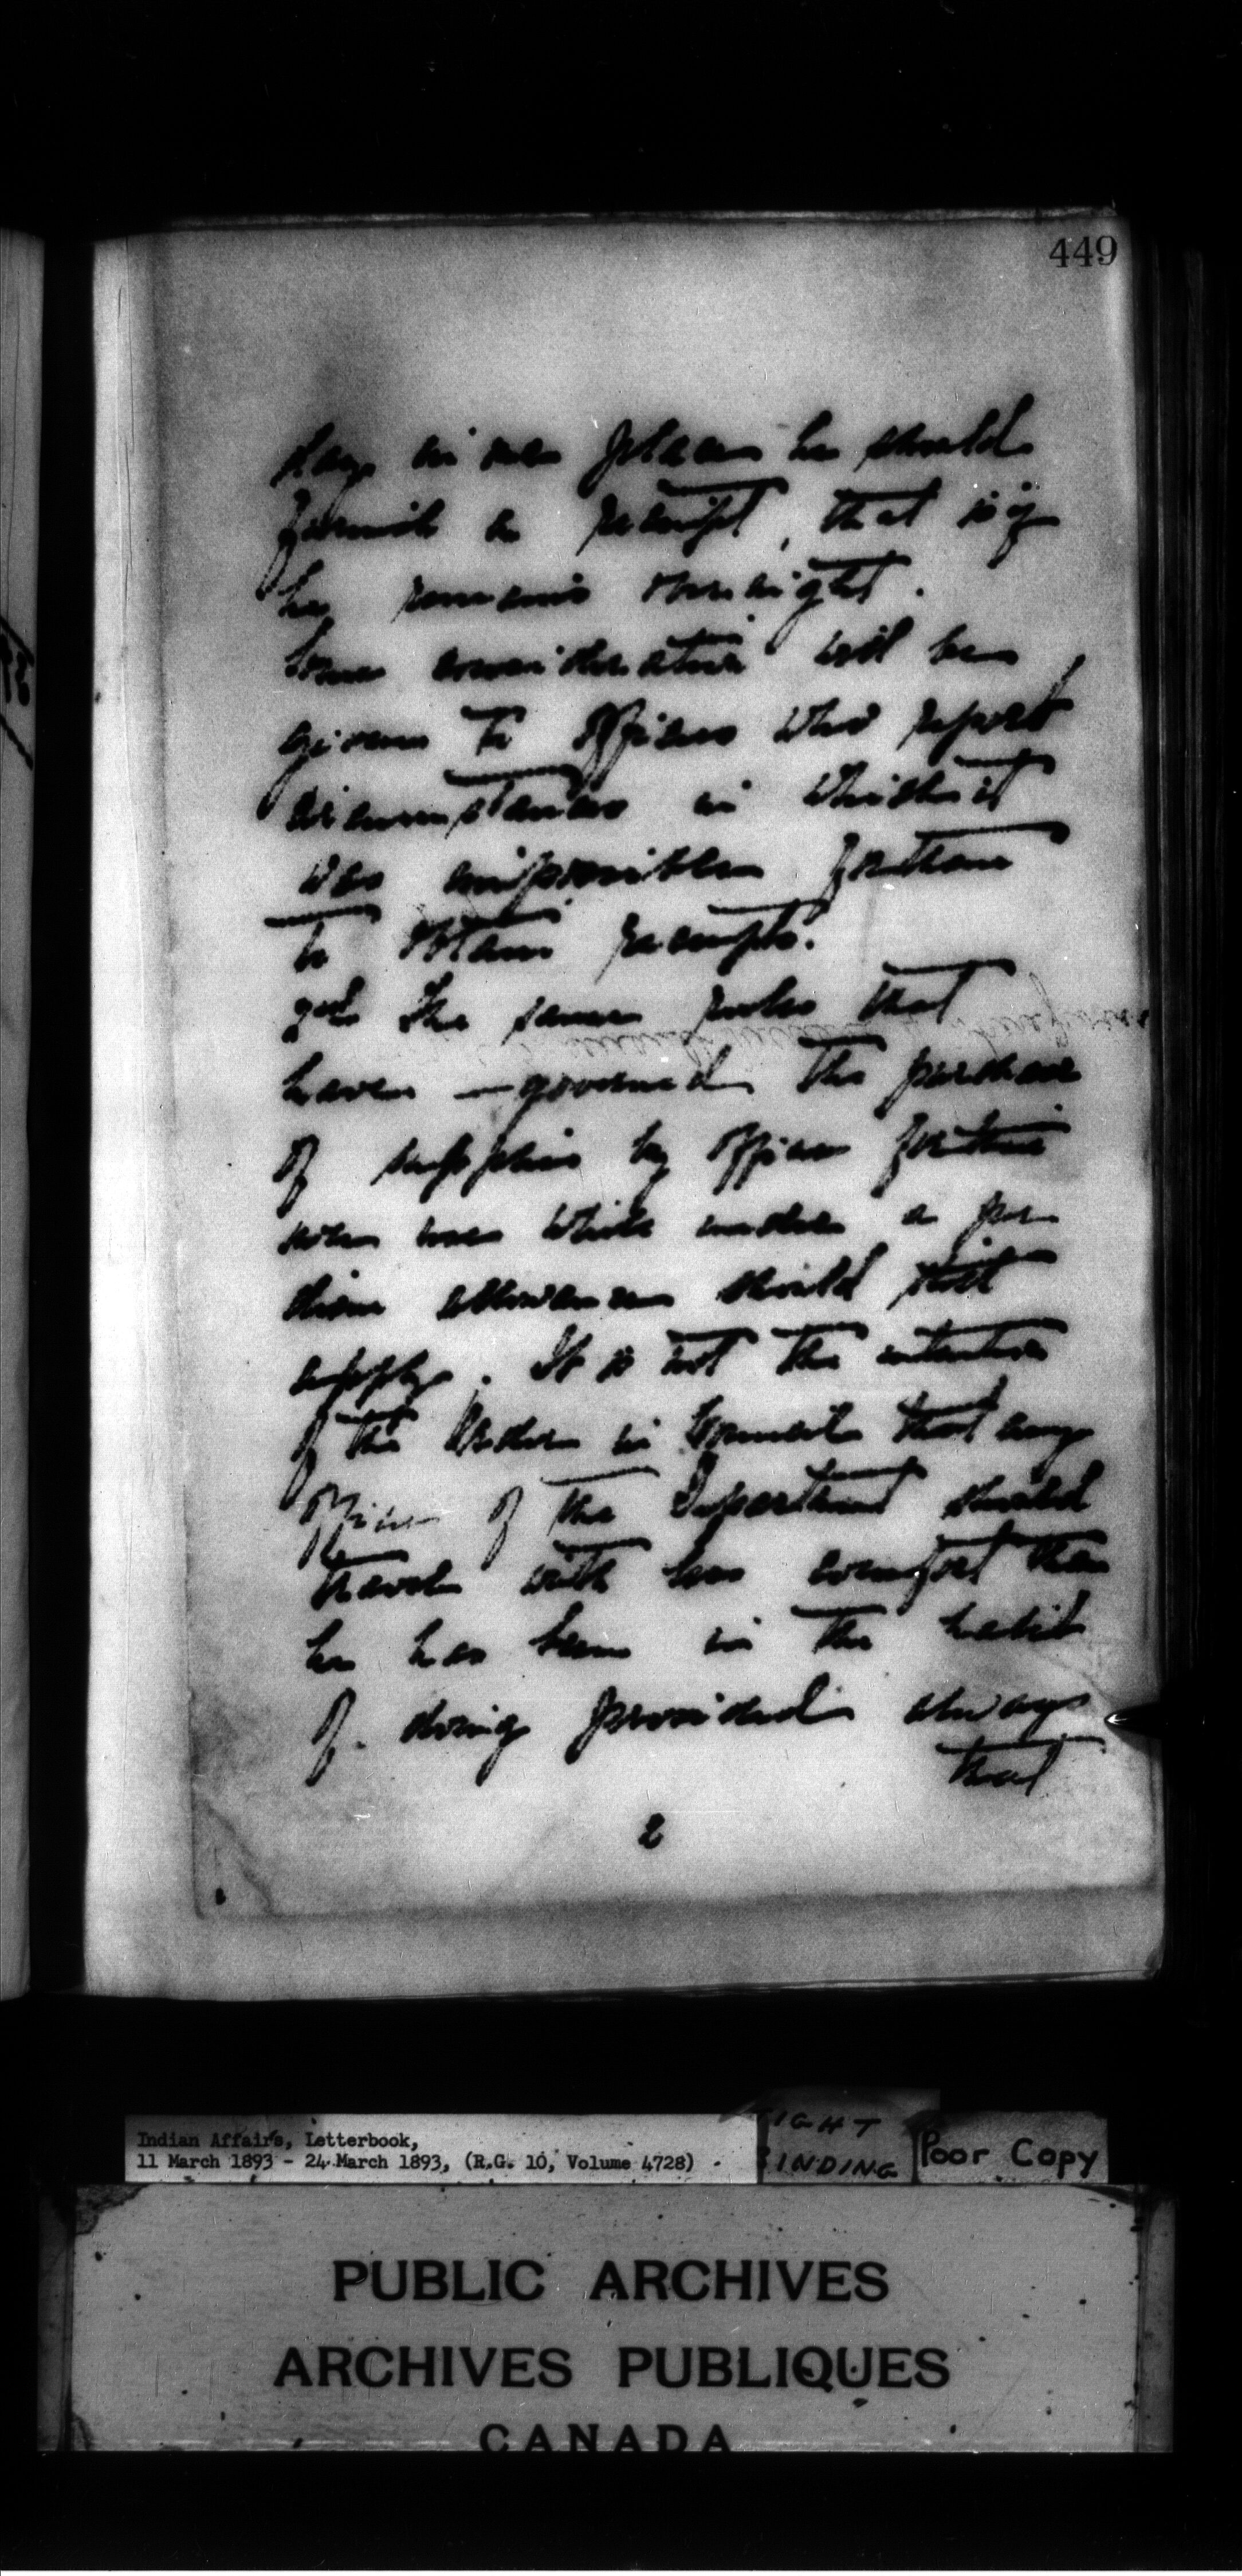 449
day in one place he should
furnish a receipt, that is if
he remains overnight.
Some consideration will be
given to officers who report
circumstances in which it
was impossible for them
to obtain receipts.
the same rules that
have governed the purchase
of supplies by officers for their
own use while under a per
diem allowance should still
apply. It is not the intention
of the Order in Council that any
Officer of the Department should
travel with less comfort than
he has been in the habit
of doing provided always
that
2
Indian Affairs, Letterbook,
11 March 1893 - 24 March 1893, (R.G. 10, Volume 4728)
TIGHT
BINDING
Poor Copy
PUBLIC ARCHIVES
ARCHIVES PUBLIQUES
CANADA